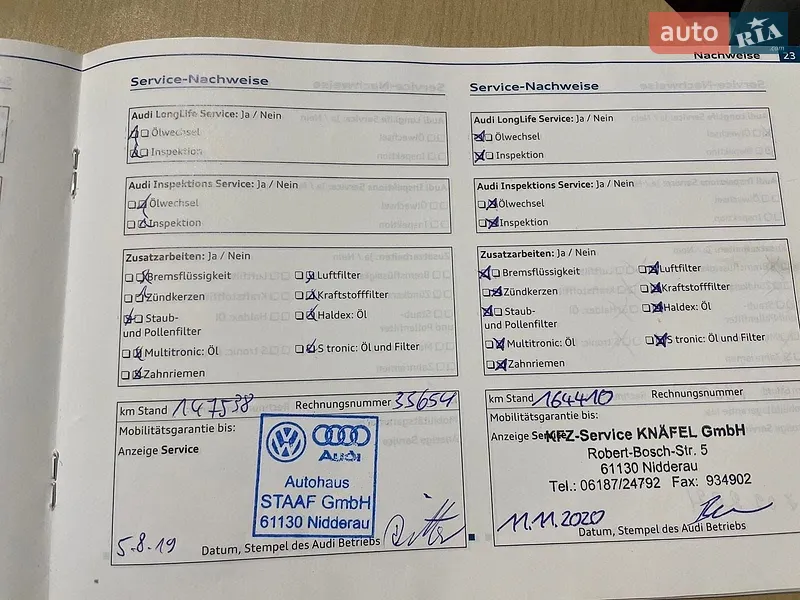 auto RIA .com
Nachweise 23
Service-Nachweise
Audi LongLife Service: Ja / Nein
Ölwechsel
Inspektion
Audi Inspektions Service: Ja / Nein
Ölwechsel
Inspektion
Zusatzarbeiten: Ja / Nein
Bremsflüssigkeit Luftfilter
Zündkerzen Kraftstofffilter
Staub- Haldex: Öl
und Pollenfilter
Multitronic: Öl S tronic: Öl und Filter
Zahnriemen
km Stand 147538 Rechnungsnummer 33654
Mobilitätsgarantie bis:
Anzeige Service
Audi
Autohaus
STAAF GmbH
61130 Nidderau
5.8.19
Datum, Stempel des Audi Betriebs
Service-Nachweise
Audi LongLife Service: Ja / Nein
Ölwechsel
Inspektion
Audi Inspektions Service: Ja / Nein
Ölwechsel
Inspektion
Zusatzarbeiten: Ja / Nein
Bremsflüssigkeit Luftfilter
Zündkerzen Kraftstofffilter
Staub- Haldex: Öl
und Pollenfilter
Multitronic: Öl S tronic: Öl und Filter
Zahnriemen
km Stand 164410 Rechnungsnummer
Mobilitätsgarantie bis:
Anzeige Service
KFZ-Service KNÄFEL GmbH
Robert-Bosch-Str. 5
61130 Nidderau
Tel.: 06187/24792 Fax: 934902
11.11.2020
Datum, Stempel des Audi Betriebs